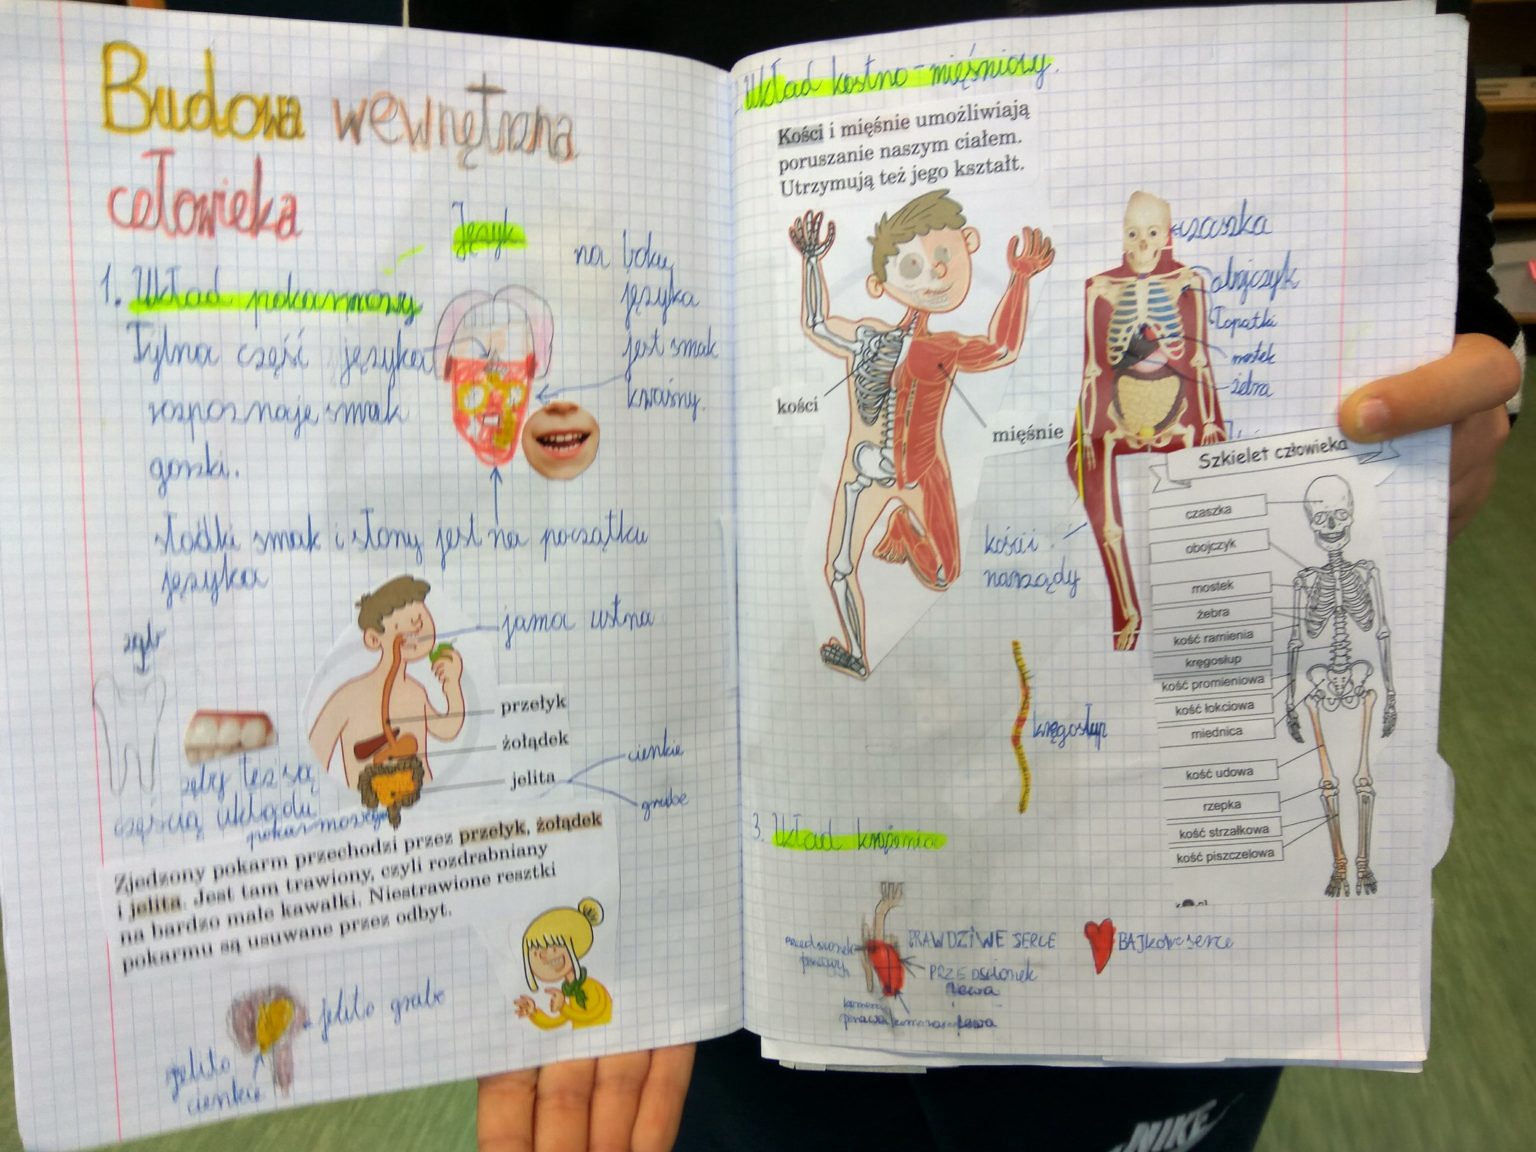 Budowa wewnętrzna
człowieka
Język
1. Układ pokarmowy
Tylna część języka
rozpoznaje smak
gorzki.
na boku
języka
jest smak
kwaśny.
słodki smak i słony jest na początku
języka
jama ustna
ząb
przełyk
żołądek
jelita
cienkie
grube
zęby też są
częścią układu
pokarmowego
Zjedzony pokarm przechodzi przez przełyk, żołądek
i jelita. Jest tam trawiony, czyli rozdrabniany
na bardzo małe kawałki. Niestrawione resztki
pokarmu są usuwane przez odbyt.
jelito grube
jelito
cienkie
Układ kostno-mięśniowy.
Kości i mięśnie umożliwiają
poruszanie naszym ciałem.
Utrzymują też jego kształt.
kości
mięśnie
czaszka
obojczyk
łopatki
mostek
żebra
kości i
narządy
kręgosłup
Szkielet człowieka
czaszka
obojczyk
mostek
żebra
kość ramienia
kręgosłup
kość promieniowa
kość łokciowa
miednica
kość udowa
rzepka
kość strzałkowa
kość piszczelowa
3. Układ krążenia
PRAWDZIWE SERCE
PRZEDSIONEK
lewa
prawa
lewa
BAJKOWE SERCE
NIKE